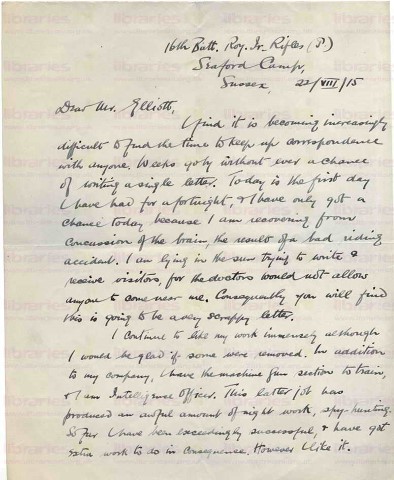 16th Batt. Roy. Ir. Rifles (P.)
Seaford Camp,
Sussex, 22/VIII/15
Dear Mr. Elliott,
I find it is becoming increasingly
difficult to find the time to keep up correspondence
with anyone. Weeks go by without ever a chance
of writing a single letter. Today is the first day
I have had for a fortnight, & I have only got a
chance today because I am recovering from
concussion of the brain, the result of a bad riding
accident. I am lying in the sun trying to write &
receive visitors, for the doctors would not allow
anyone to come near me. Consequently you will find
this is going to be a very scrappy letter.
I continue to like my work immensely although
I would be glad if some were removed. In addition
to my company, I have the machine gun section to train,
& I am Intelligence Officer. This latter job has
produced an awful amount of night work, spy-hunting.
So far I have been exceedingly successful, & have got
extra work to do in consequence. However I like it.